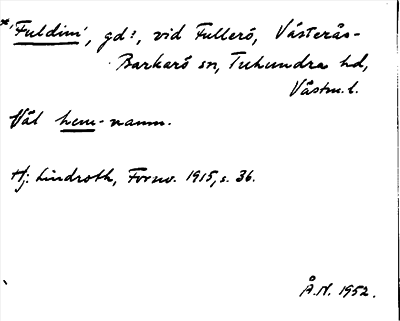 *'Fuldini', gd?, vid Fullerö, Västerås-
Barkarö sn, Tuhundra hd,
Västm. l.
Väl hem-namn.
Hj. Lindroth, Fornv. 1915, s. 36.
Å.N. 1952.